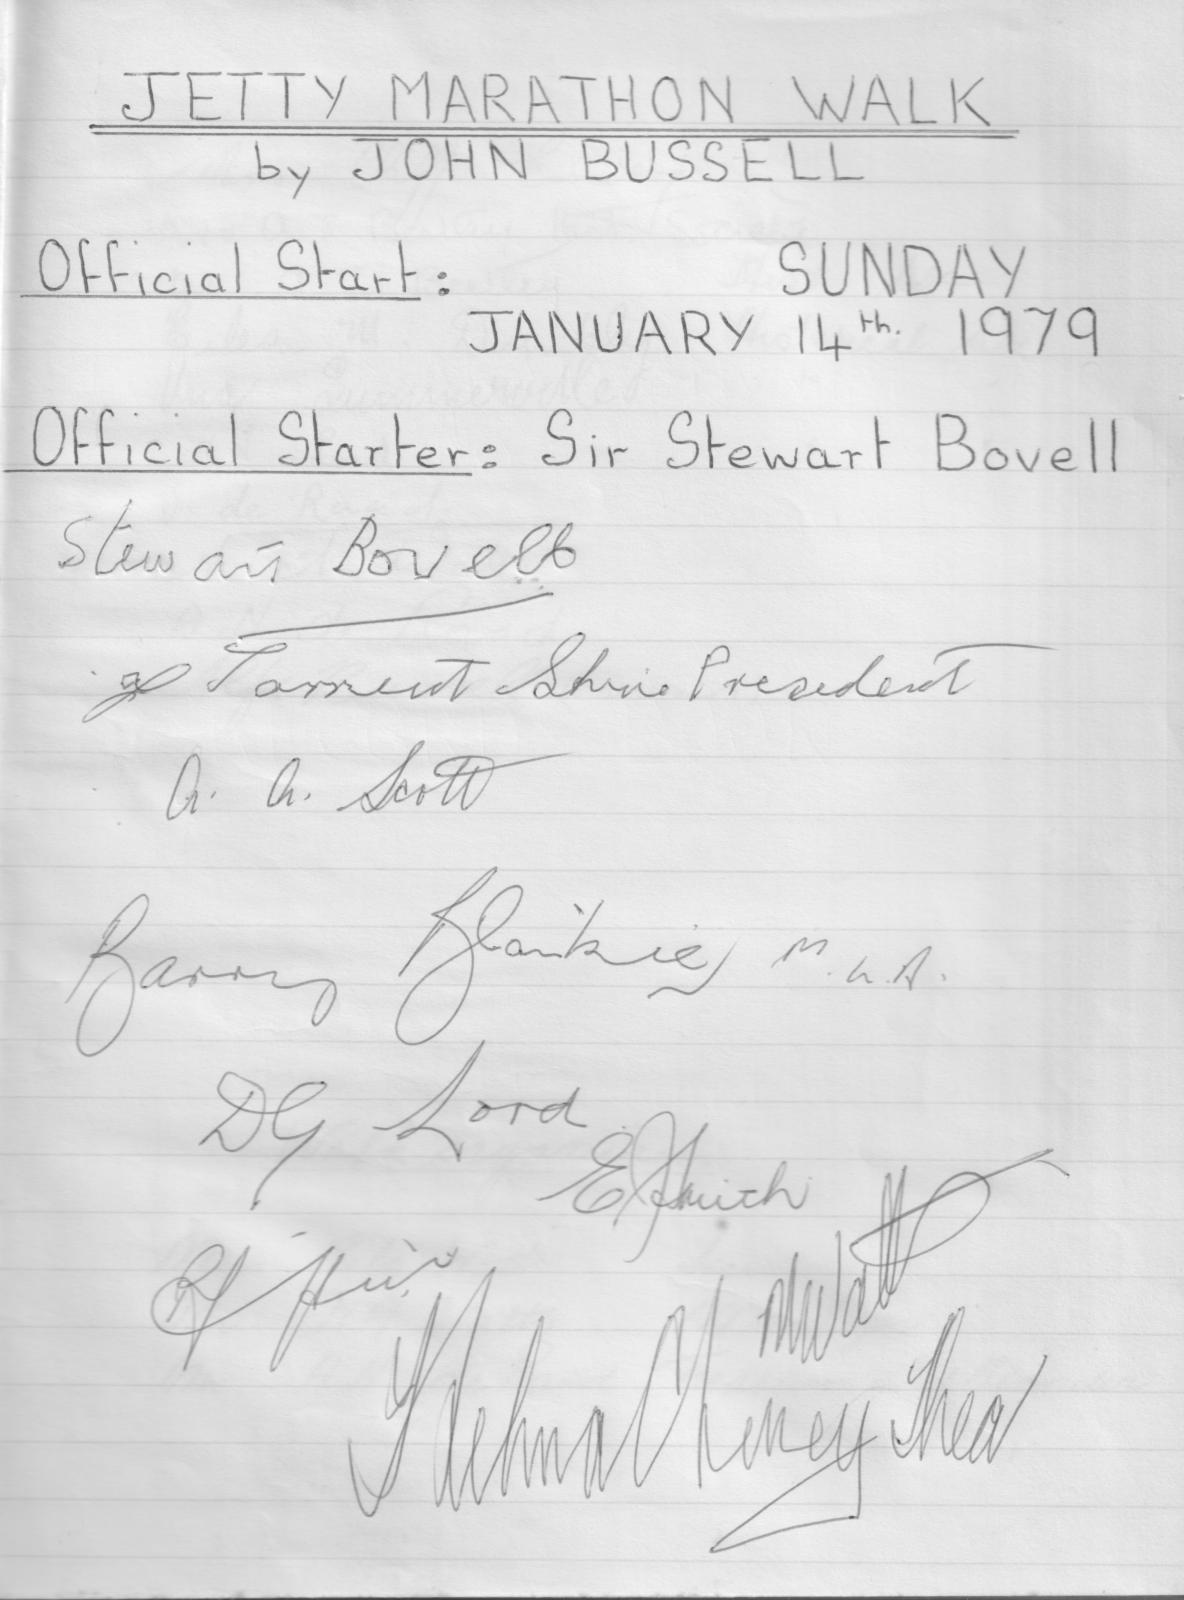 JETTY MARATHON WALK
by JOHN BUSSELL
Official Start: SUNDAY
JANUARY 14th. 1979
Official Starter: Sir Stewart Bovell
Stewart Bovell
Torrent Shire President
A. A. Scott
Barry Blaikie M.L.A.
DG Lord
E Smith
MWatt
Thelma Cheney Shea